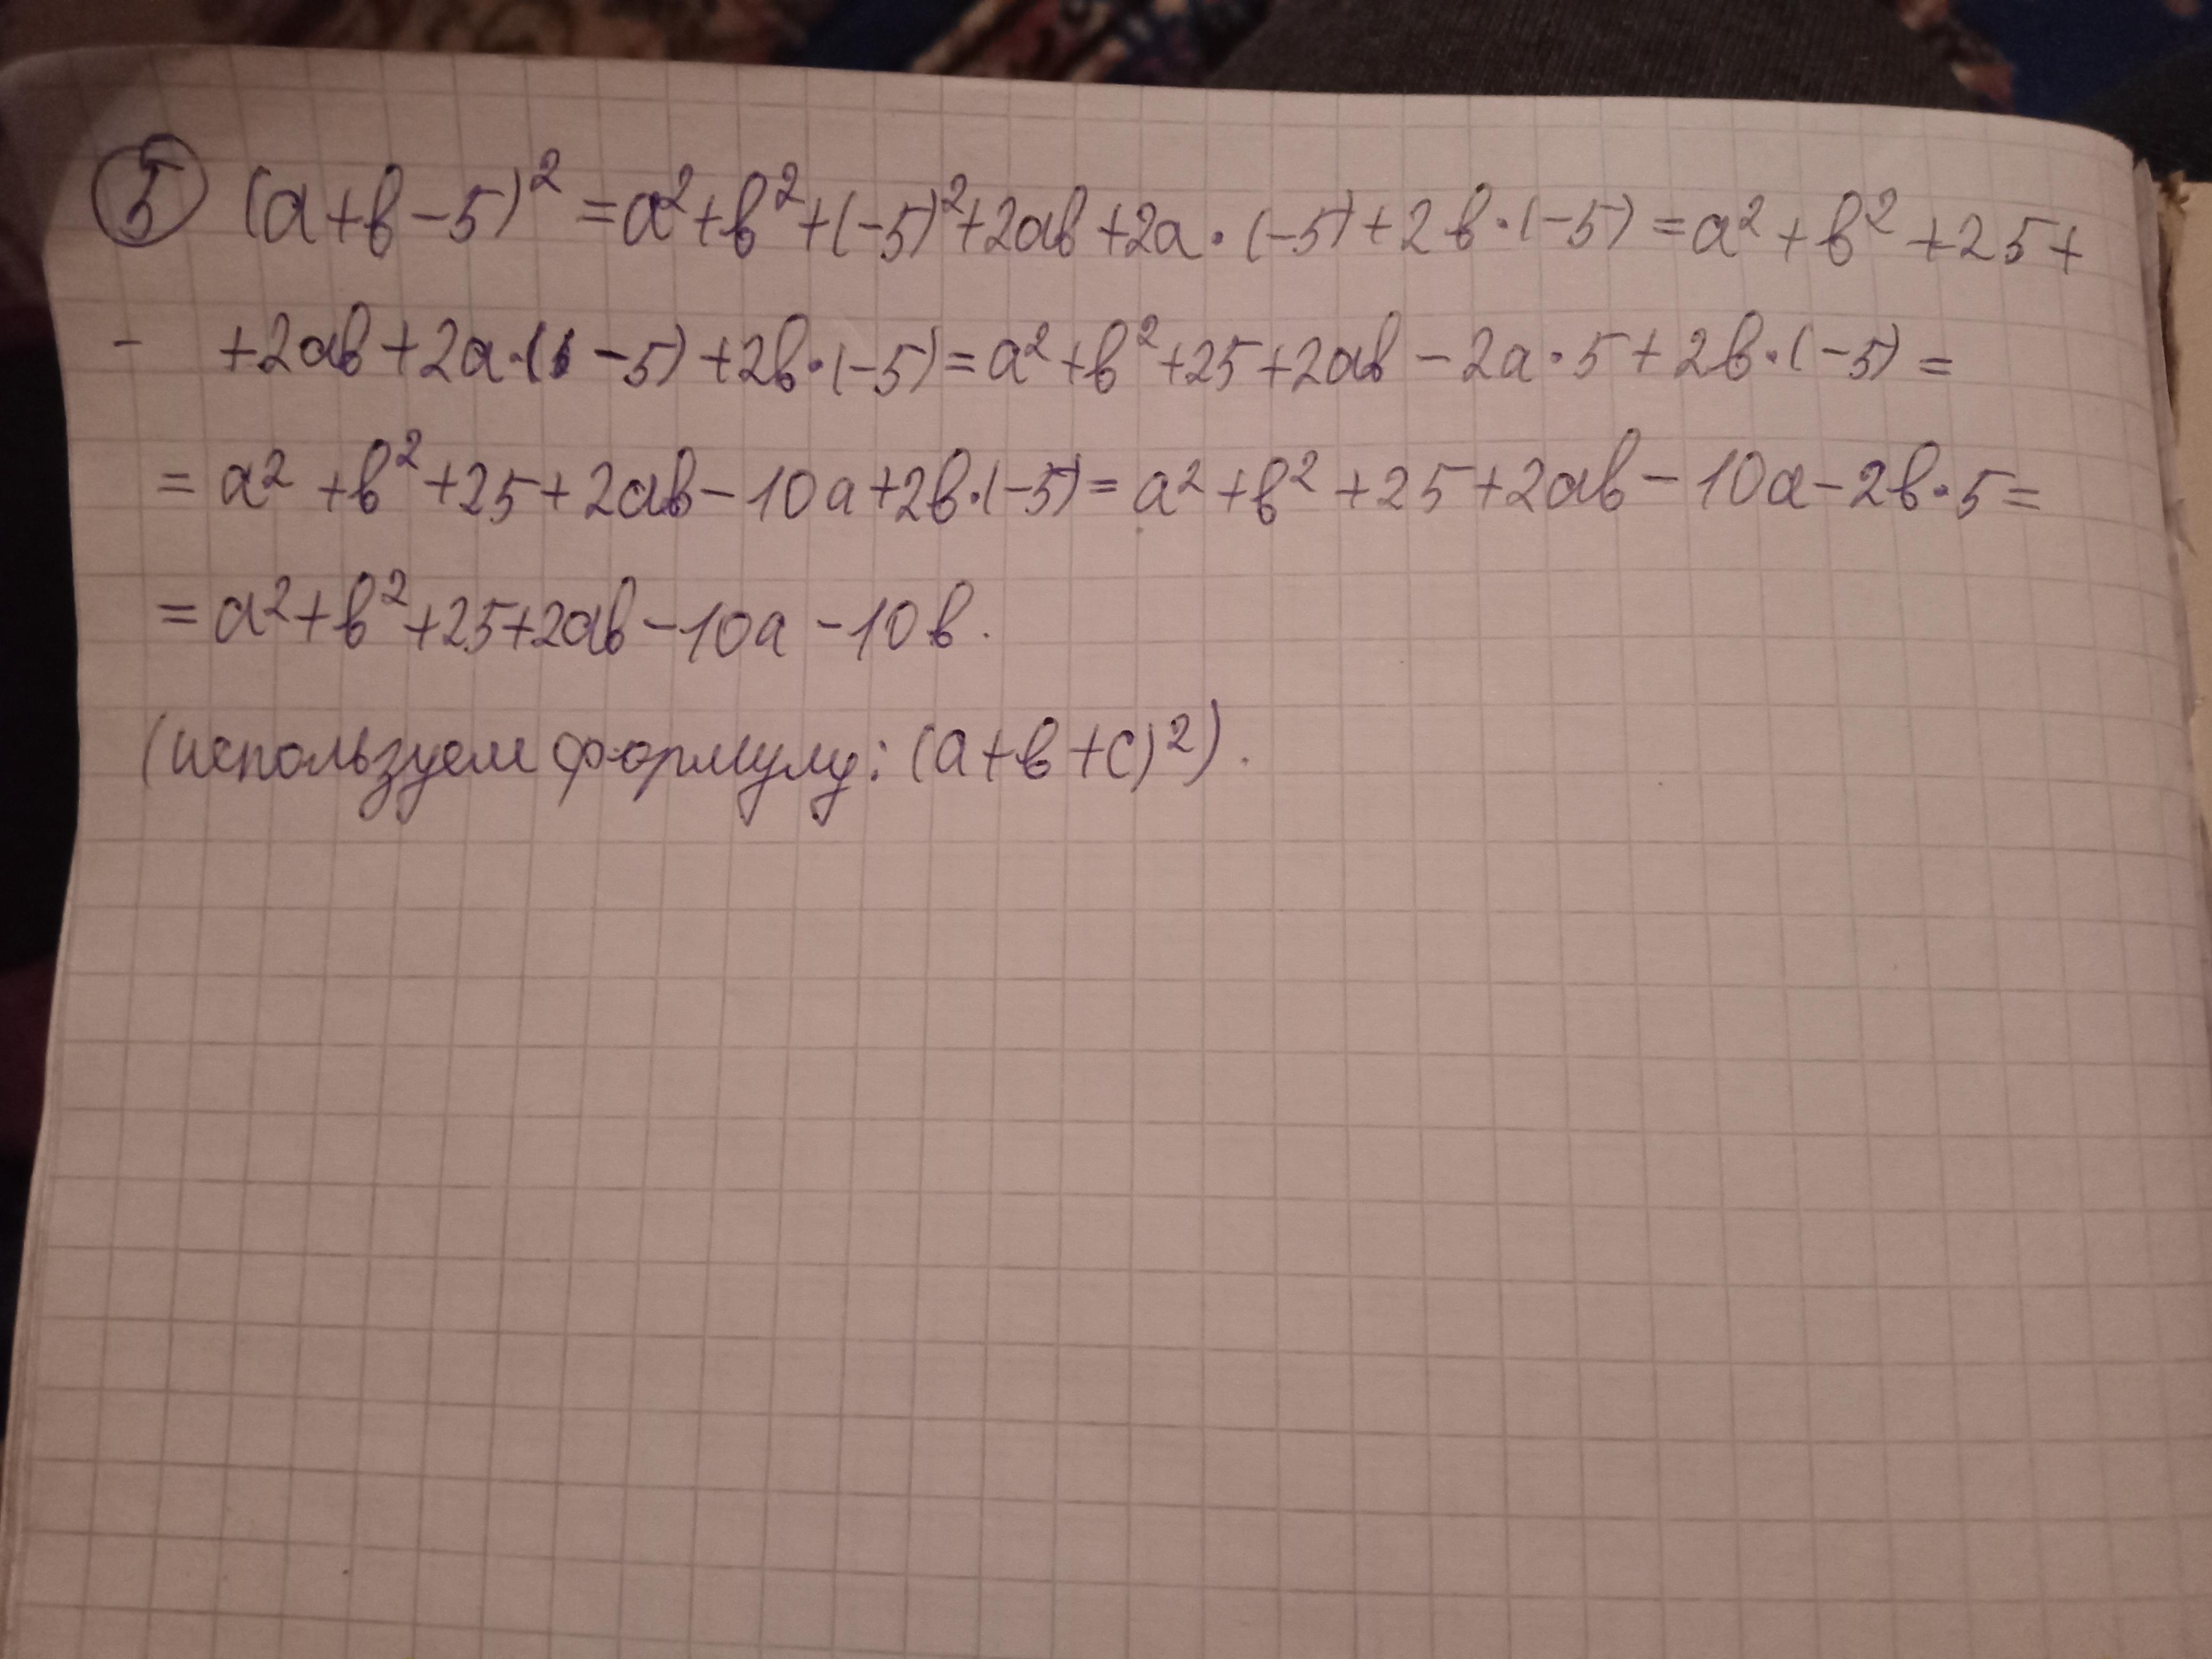 5 (a+b-5)² = a²+b²+(-5)²+2ab+2a·(-5)+2b·(-5) = a²+b²+25+
- +2ab+2a·(-5)+2b·(-5) = a²+b²+25+2ab-2a·5+2b·(-5) =
= a²+b²+25+2ab-10a+2b·(-5) = a²+b²+25+2ab-10a-2b·5 =
= a²+b²+25+2ab-10a-10b.
(используем формулу: (a+b+c)²).